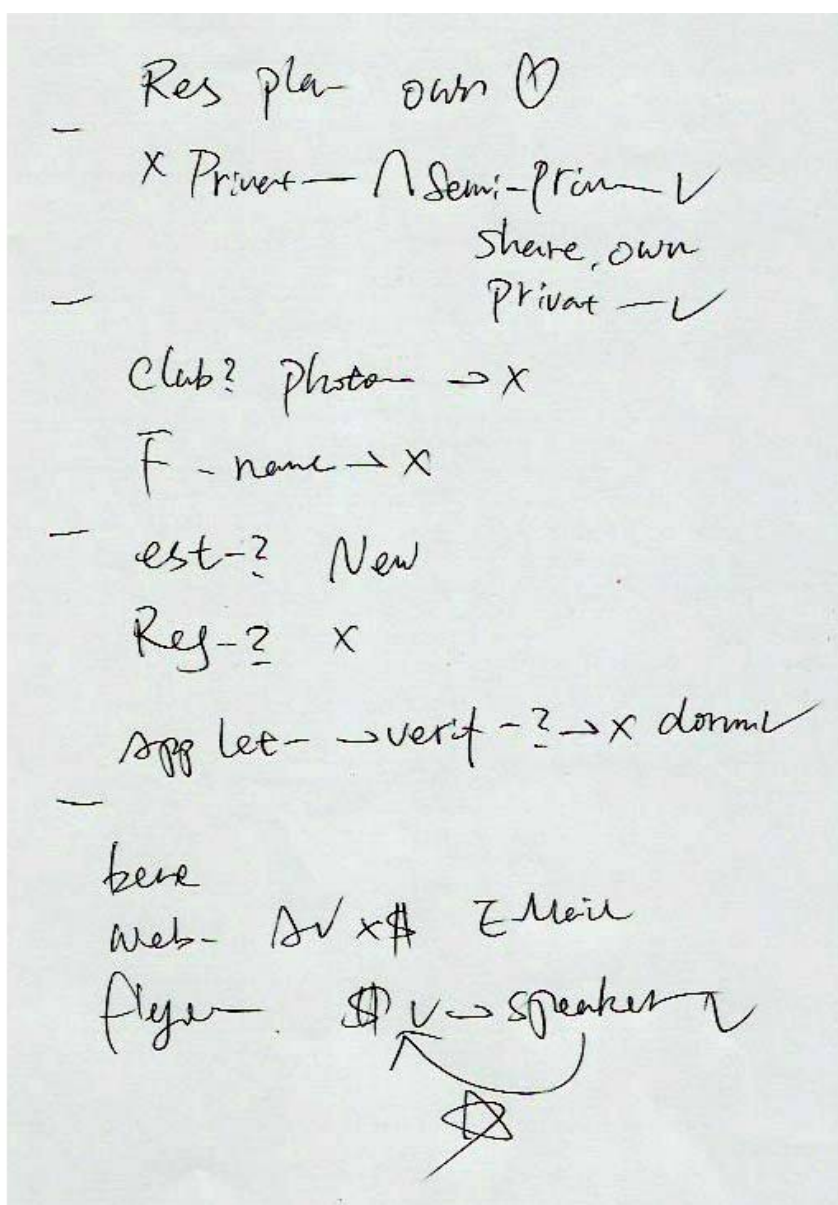 Res pla- own
x Privat — Semi-Priv — ✓
share, own
Privat — ✓
Club? photo — → x
F - name → x
est-? New
Reg-? x
App let- → verif -? → x dorm ✓
bene
web- x$ EMail
flyer — $ ✓ → speaker ✓